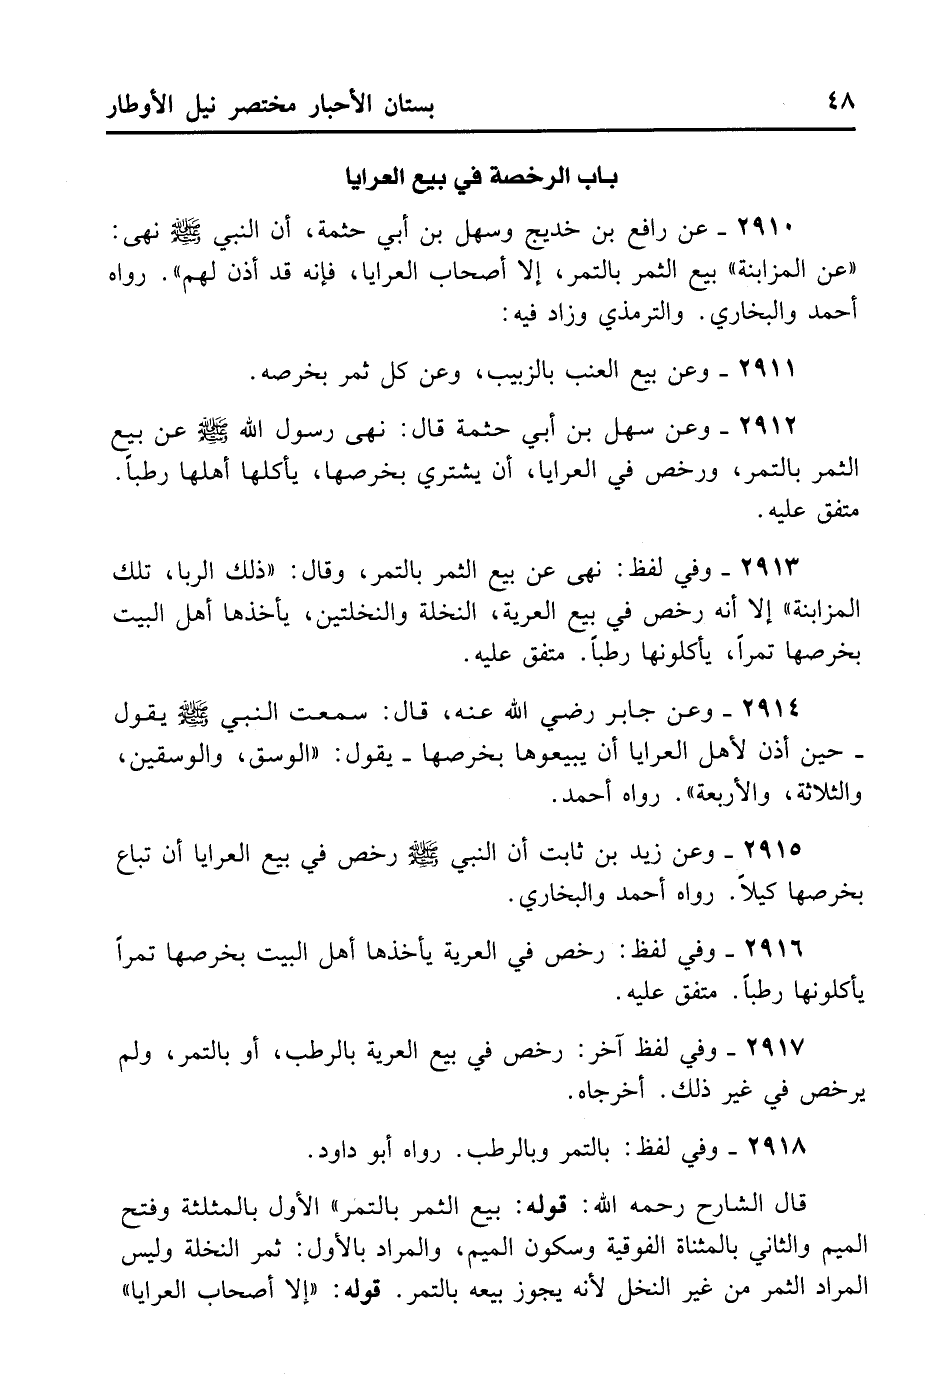 ٤٨
بستان الأحبار مختصر نيل الأوطار
باب الرخصة في بيع العرايا
٢٩١٠ ـ عن رافع بن خديج وسهل بن أبي حثمة، أن النبي ﷺ نهى:
«عن المزابنة» بيع الثمر بالتمر، إلا أصحاب العرايا، فإنه قد أذن لهم». رواه
أحمد والبخاري. والترمذي وزاد فيه:
٢٩١١ ـ وعن بيع العنب بالزبيب، وعن كل ثمر بخرصه.
٢٩١٢ ـ وعن سهل بن أبي حثمة قال: نهى رسول الله ﷺ عن بيع
الثمر بالتمر، ورخص في العرايا، أن يشتري بخرصها، يأكلها أهلها رطباً.
متفق عليه.
٢٩١٣ ـ وفي لفظ: نهى عن بيع الثمر بالتمر، وقال: «ذلك الربا، تلك
المزابنة» إلا أنه رخص في بيع العرية، النخلة والنخلتين، يأخذها أهل البيت
بخرصها تمراً، يأكلونها رطباً. متفق عليه.
٢٩١٤ ـ وعن جابر رضي الله عنه، قال: سمعت النبي ﷺ يقول
ـ حين أذن لأهل العرايا أن يبيعوها بخرصها ـ يقول: «الوسق، والوسقين،
والثلاثة، والأربعة». رواه أحمد.
٢٩١٥ ـ وعن زيد بن ثابت أن النبي ﷺ رخص في بيع العرايا أن تباع
بخرصها كيلاً. رواه أحمد والبخاري.
٢٩١٦ ـ وفي لفظ: رخص في العرية يأخذها أهل البيت بخرصها تمراً
يأكلونها رطباً. متفق عليه.
٢٩١٧ ـ وفي لفظ آخر: رخص في بيع العرية بالرطب، أو بالتمر، ولم
يرخص في غير ذلك. أخرجاه.
٢٩١٨ ـ وفي لفظ: بالتمر وبالرطب. رواه أبو داود.
قال الشارح رحمه الله: قوله: بيع الثمر بالتمر» الأول بالمثلثة وفتح
الميم والثاني بالمثناة الفوقية وسكون الميم، والمراد بالأول: ثمر النخلة وليس
المراد الثمر من غير النخل لأنه يجوز بيعه بالتمر. قوله: «إلا أصحاب العرايا»